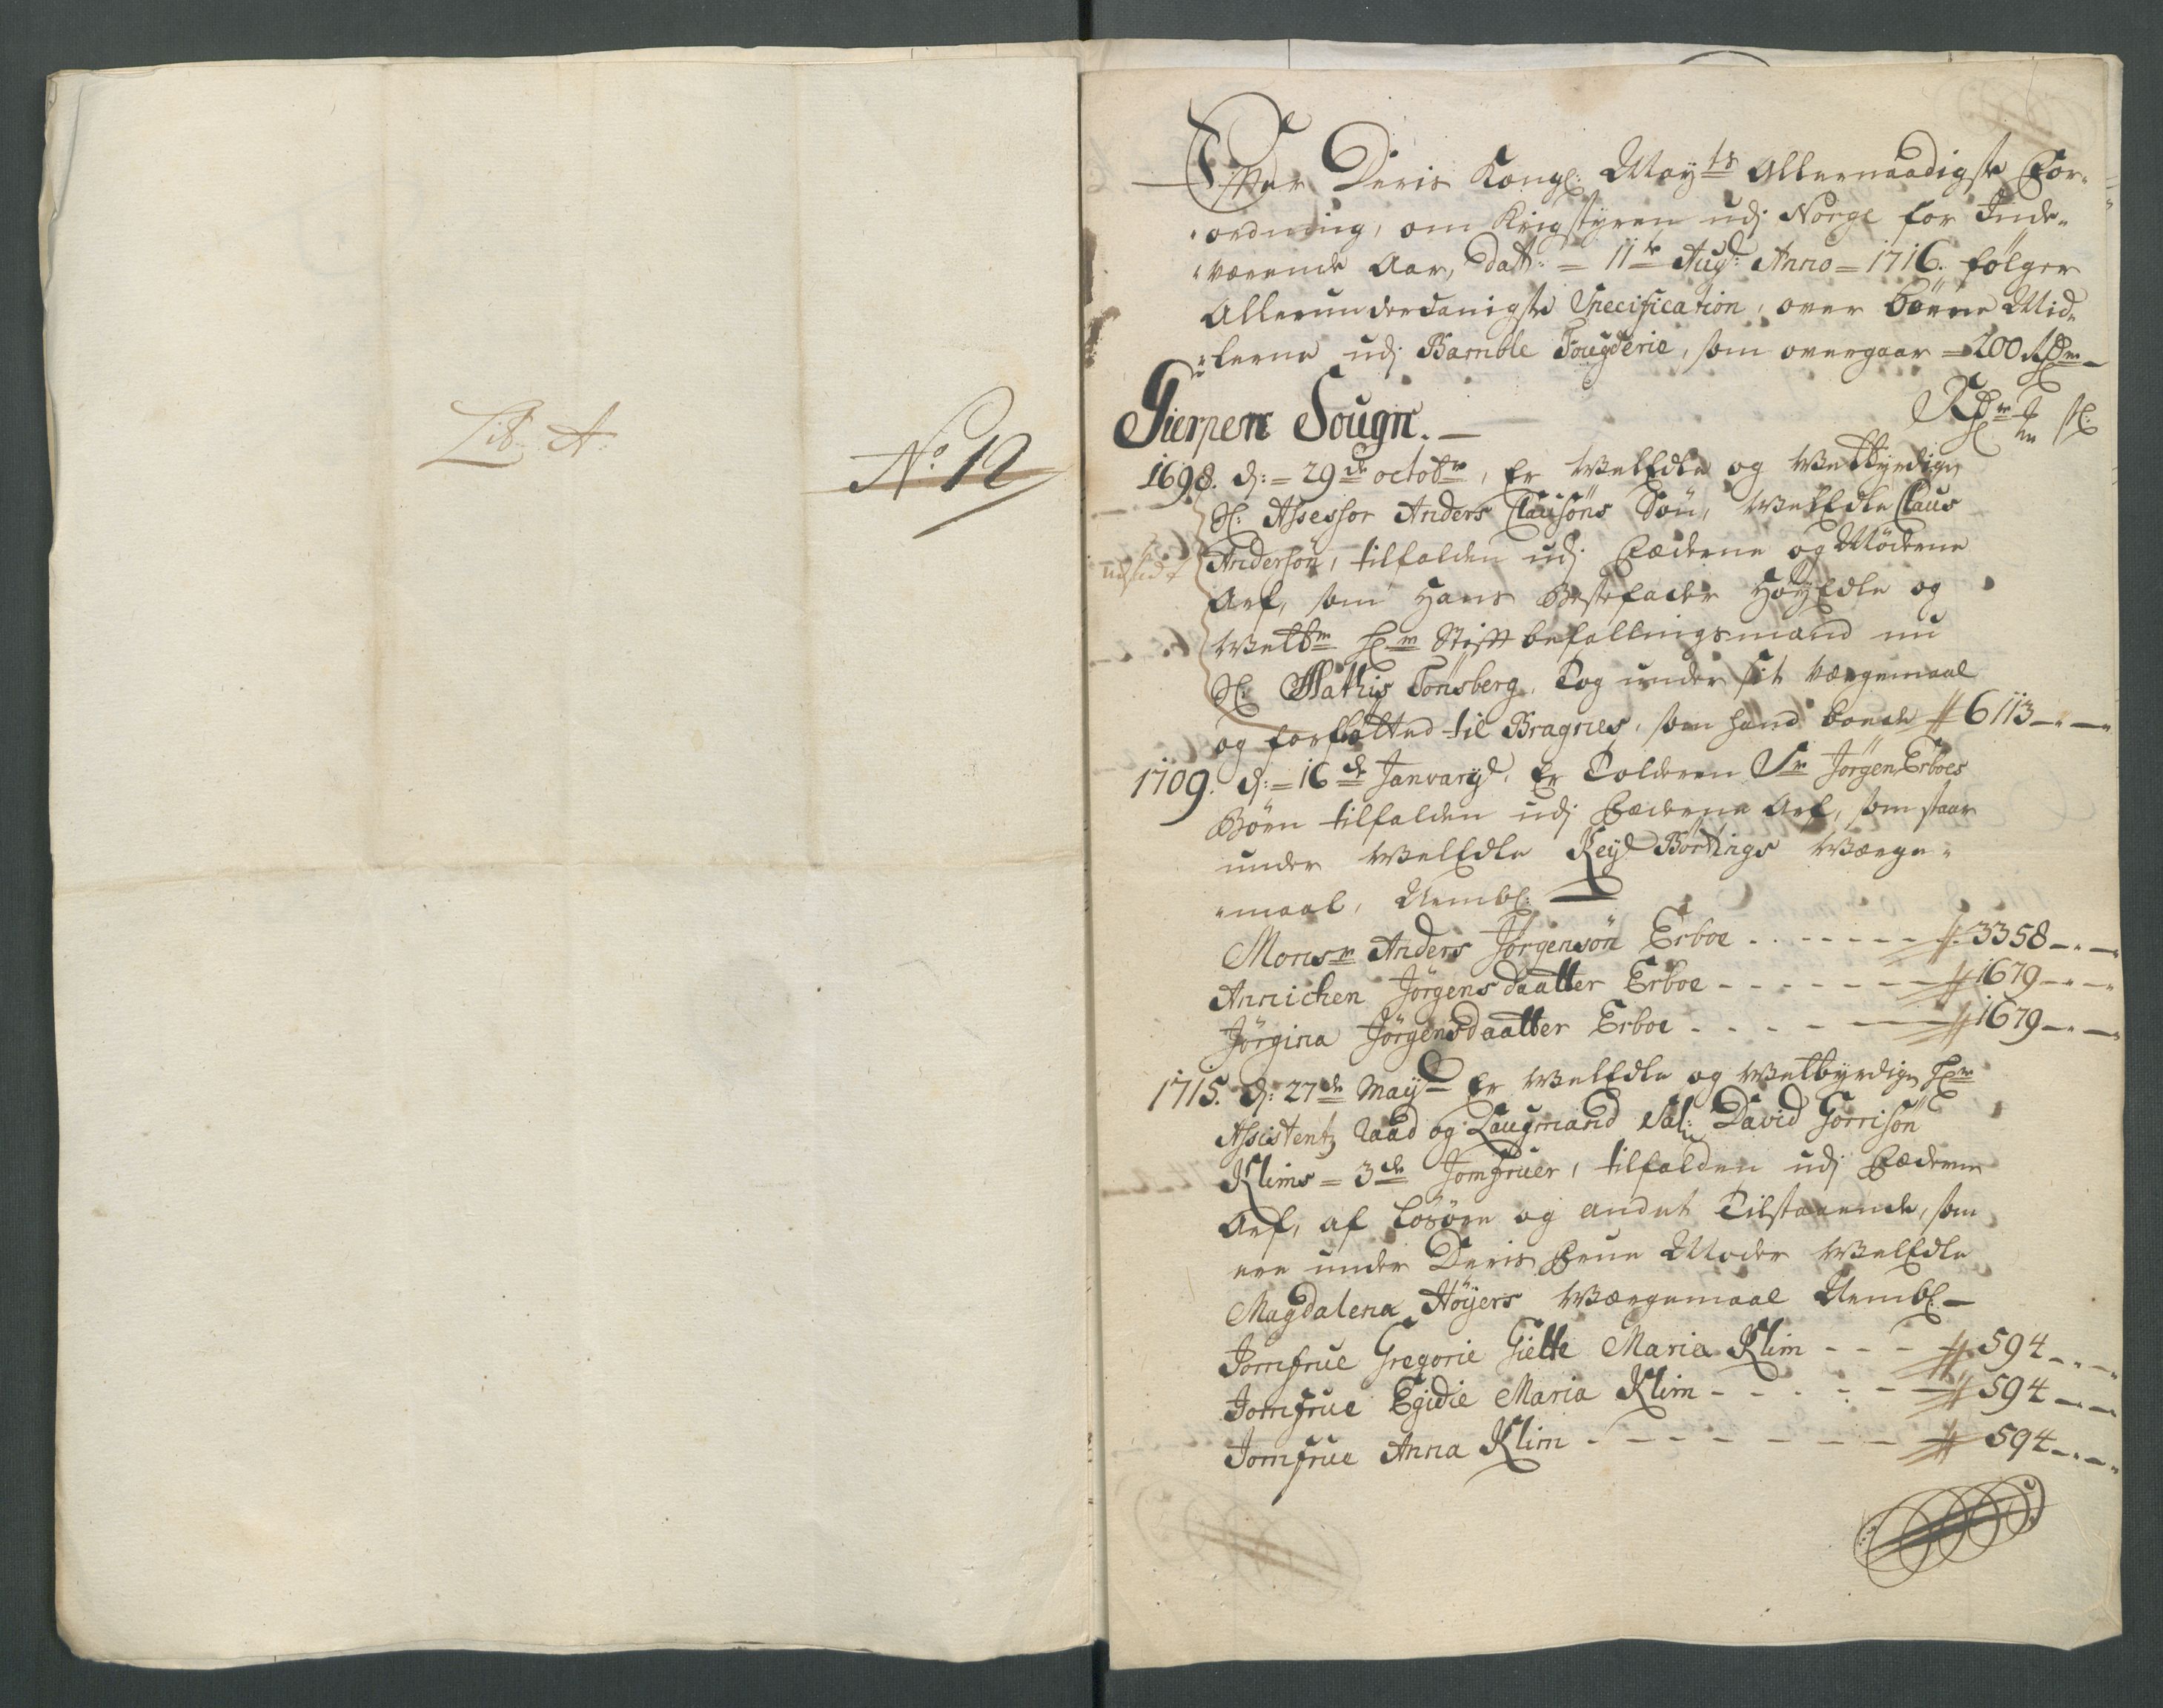 Lit: A:
No: 12
Efter Deris Kongl: Mayts Allernaadigste For¬
ordning, om Krigstyren udj Norge for Inde¬
værende Aar, Dat: = 11te Aug: Anno = 1716. følger
Allerunderdanigste Specification, over Børne Mid¬
lerne udj Bamble Fougderie, som overgaar = 200 Rdr
Rdr # sk:
Gierpen Sougn.
1698. d: = 29de octobr, Er WelEdle og Welbyrdige
H: Assessor Anders Clausöns Sön, WelEdle Claus
Andersön, tilfalden udj Fæderne og Möderne
Arf, som Hans Bestefader HöyEdle og
Welbr Hr Stiftbefallingsmand nu
Sl: Mathis Tönsberg, Tog under sit værgemaal
og forflötted til Bragnes, som hand boede # 6113
1709. d: = 16de Januarij, Er Tolderen Sr Jörgen Erboes
Börn tilfalden udj Fæderne Arf, som staar
under WelEdle Börtings Wærge¬
maal, Nembl:
Monsr Anders Jörgensön Erboe # 3358
Annichen Jörgensdaatter Erboe # 1679
Jörgina Jörgensdaatter Erboe # 1679
1715. d: 27de May Er WelEdle og Welbyrdige Hr
Assistentz Raad og Laugmand Sal: David Gorrisön
Klims = 3de Jomfruer, tilfalden udj Fæderne
Arf, af Lösöre og andet Tilstaaende, som
ere under Deris Frue Moder WelEdle
Magdalena Höyers Wærgemaal Nembl:
Jomfrue Gregorie Gielte Maria Klim # 594
Jomfrue Egidie Maria Klim # 594
Jomfrue Anna Klim # 594